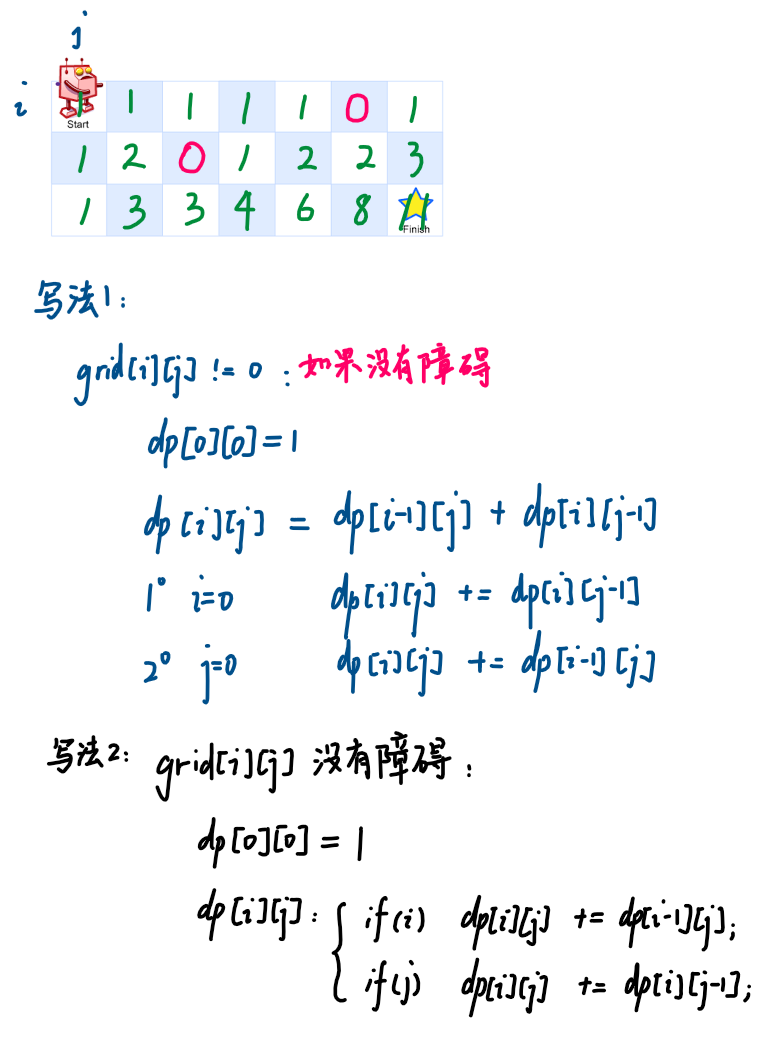 j
i 1 1 1 1 1 0 1
Start
1 2 0 1 2 2 3
1 3 3 4 6 8 11
Finish
写法1:
grid[i][j] != 0 : 如果没有障碍
dp[0][0]=1
dp[i][j] = dp[i-1][j] + dp[i][j-1]
1° i=0 dp[i][j] += dp[i][j-1]
2° j=0 dp[i][j] += dp[i-1][j]
写法2: grid[i][j] 没有障碍:
dp[0][0] = 1
dp[i][j]: { if(i) dp[i][j] += dp[i-1][j];
if(j) dp[i][j] += dp[i][j-1];